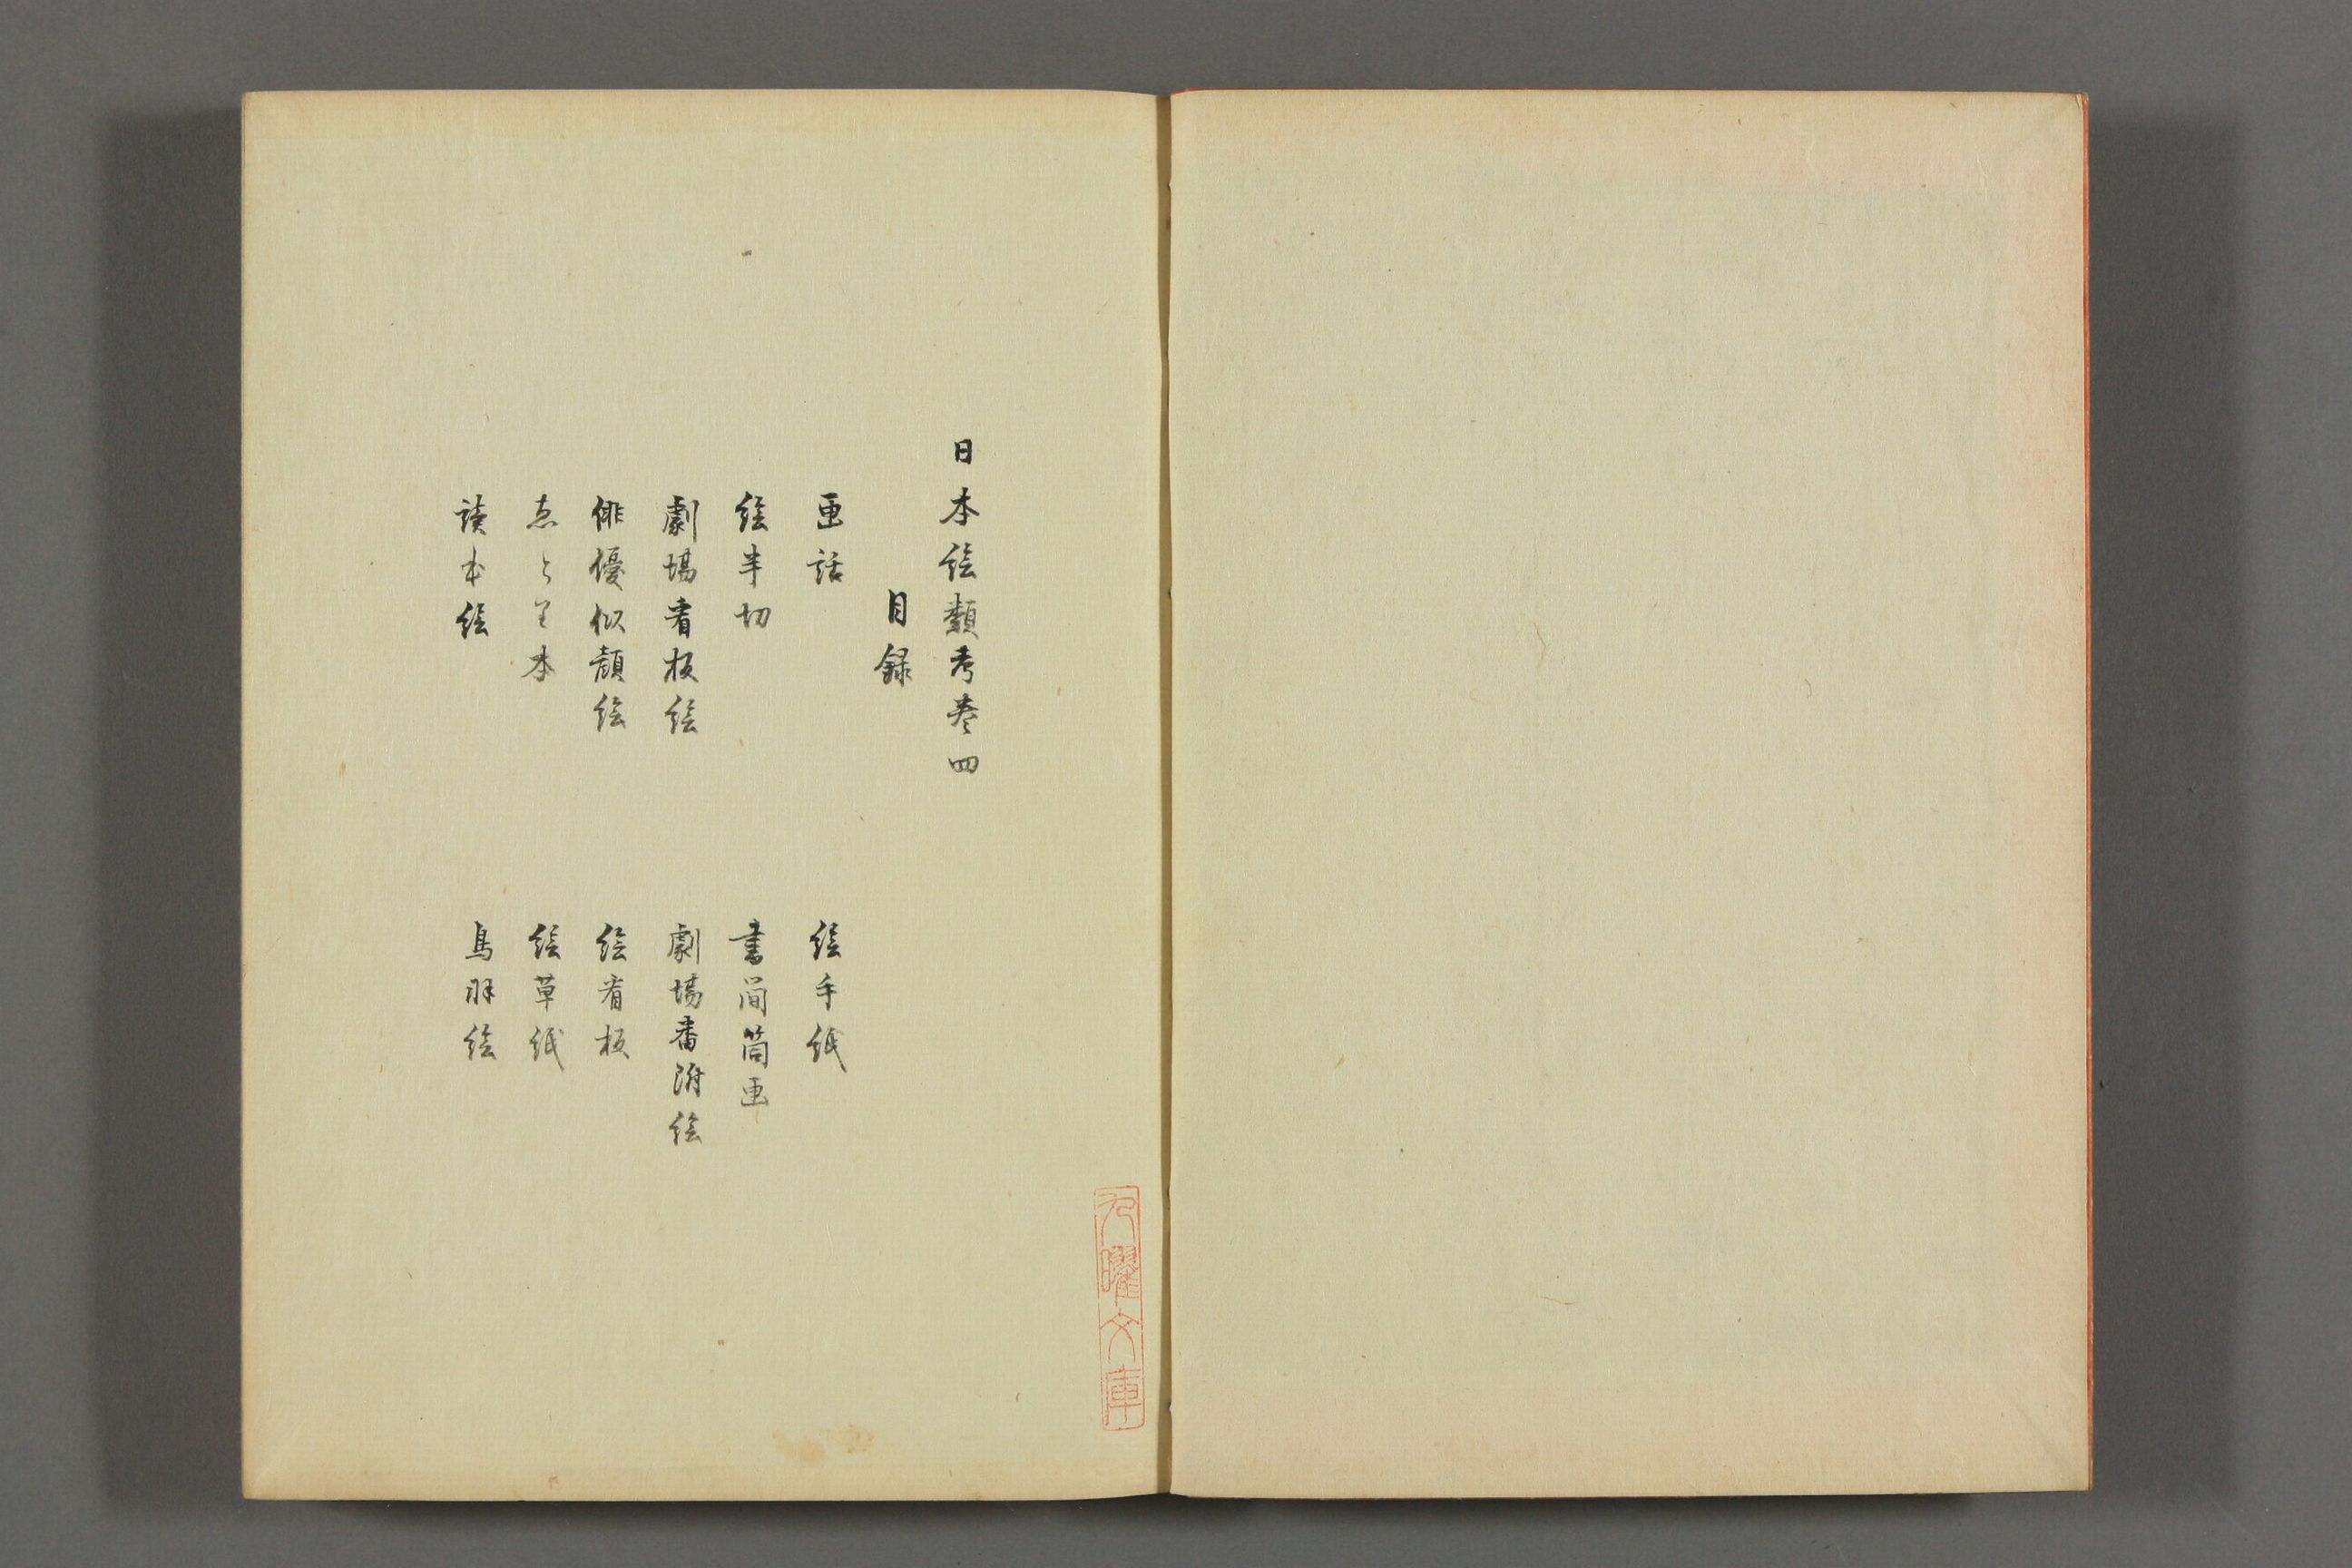 日本絵類考巻四
目録
画話　絵手紙
絵半切　書簡筒画
劇場看板絵　劇場番附絵
俳優似顔絵　絵看板
ゑとり本　絵草紙
讀本絵　鳥羽絵
九曜文庫